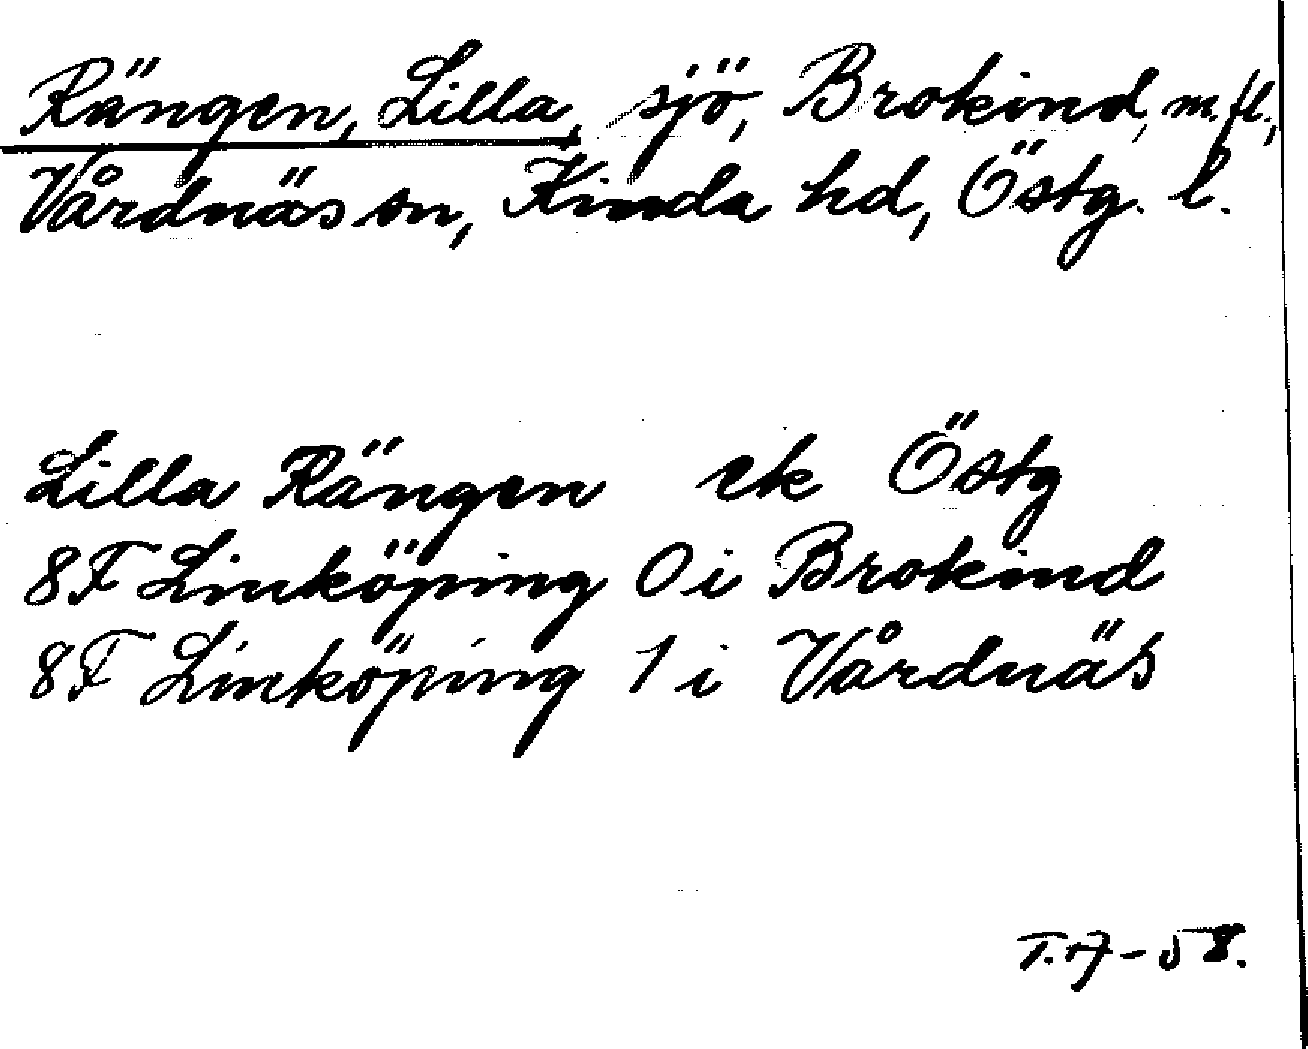 Rängen, Lilla, sjö, Brokind, m.fl.,
Vårdnäs sn, Kinda hd, Östg. l.
Lilla Rängen ek Östg
8F Linköping 0 i Brokind
8F Linköping 1 i Vårdnäs